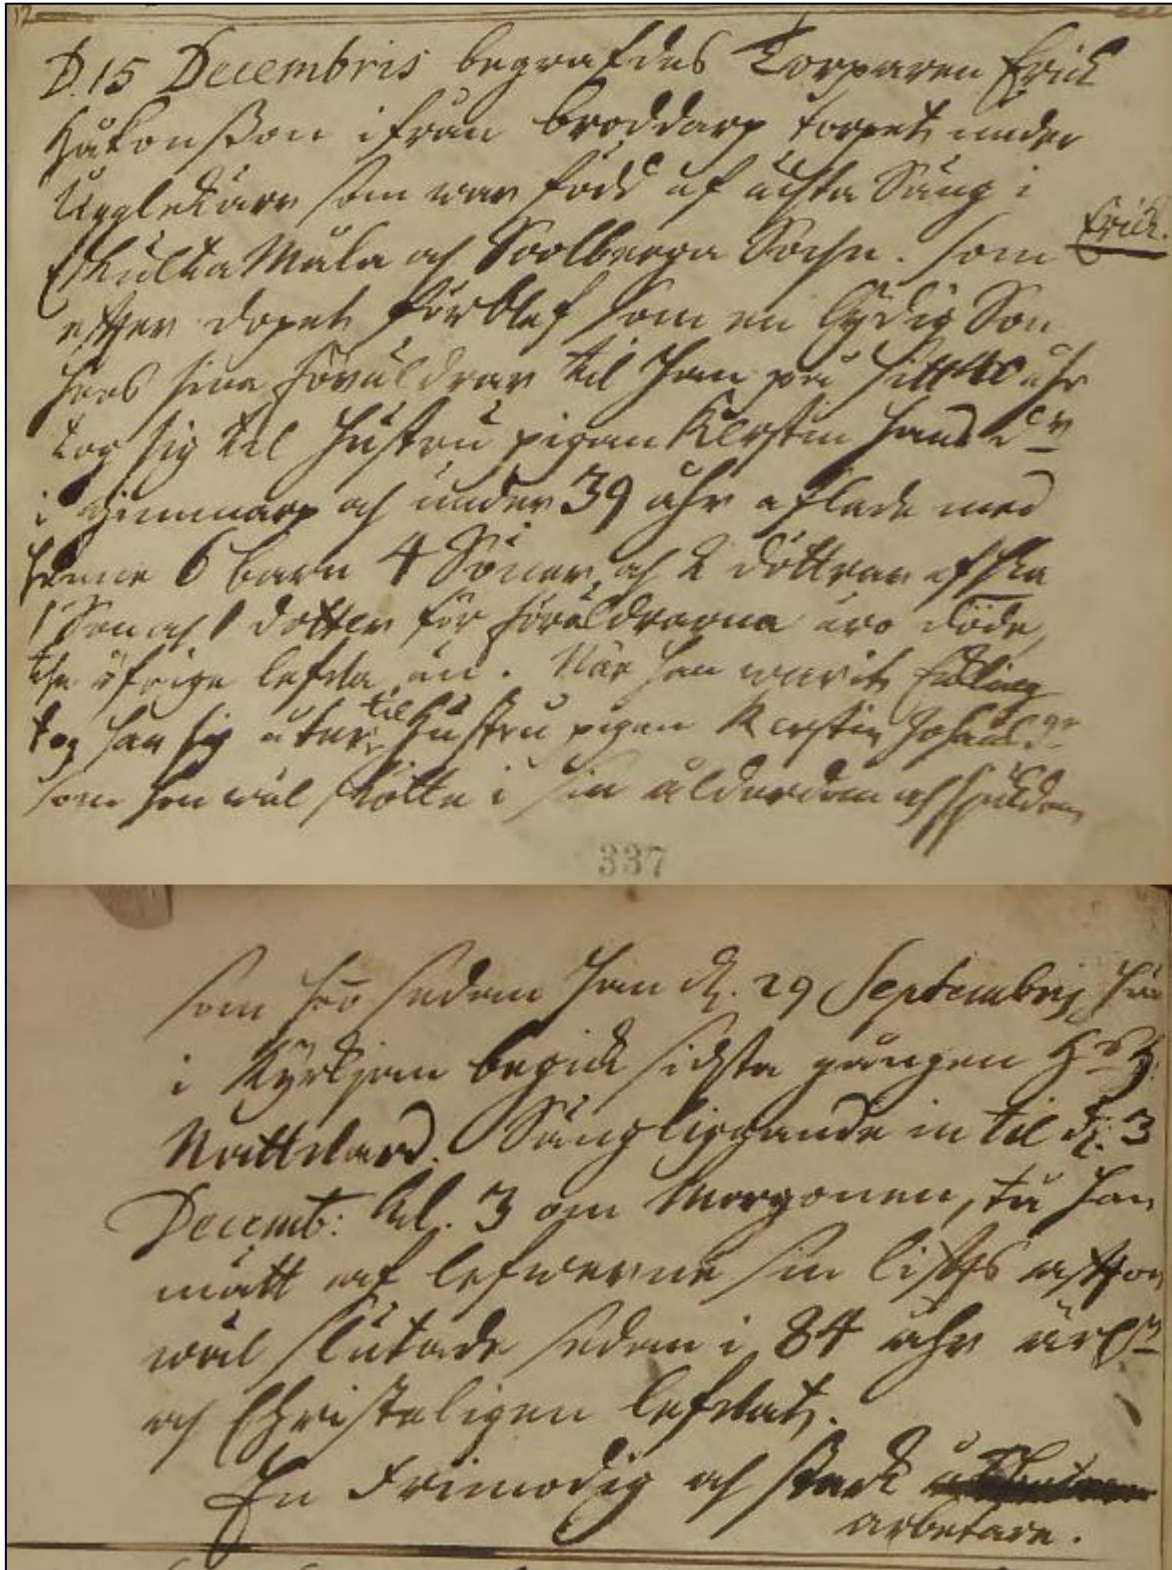 12
D. 15 Decembris begrafdes Torparen Erick
Håkonsson ifrån broddarp torpet under
Ugglekärr som war född af ächta Säng i
Måla och Solberga Sochn. som
Erick.
efter dopet förblef som en lydig Son
hoos sina föräldrar til han på sitt 40 åhr
tog sig til hustru pigan Kerstin Hans dr
i Gimmarp och under 39 åhr aflade med
henne 6 barn 4 Söner och 2 döttrar af hka
1 Son och 1 dotter för föräldrarna äro döde,
the öfrige lefwa än. När han warit Enkling
tog han sig åter til hustru pigan Kerstin Johans dr
som hon wäl skötte i sin ålderdom och siukdom
337
som hoo sedan han d. 29 Septembris här
i Kyrkjan begick sidsta gången H. H.
Nattward. Sängliggande in til d. 3
Decemb: Kl. 3 om Morgonen, tå han
mätt af lefwerne sin lifstid
wäl slutade sedan i 84 åhr ärl.n
och Christeligen lefwat.
En frimodig och stark
arbetare.